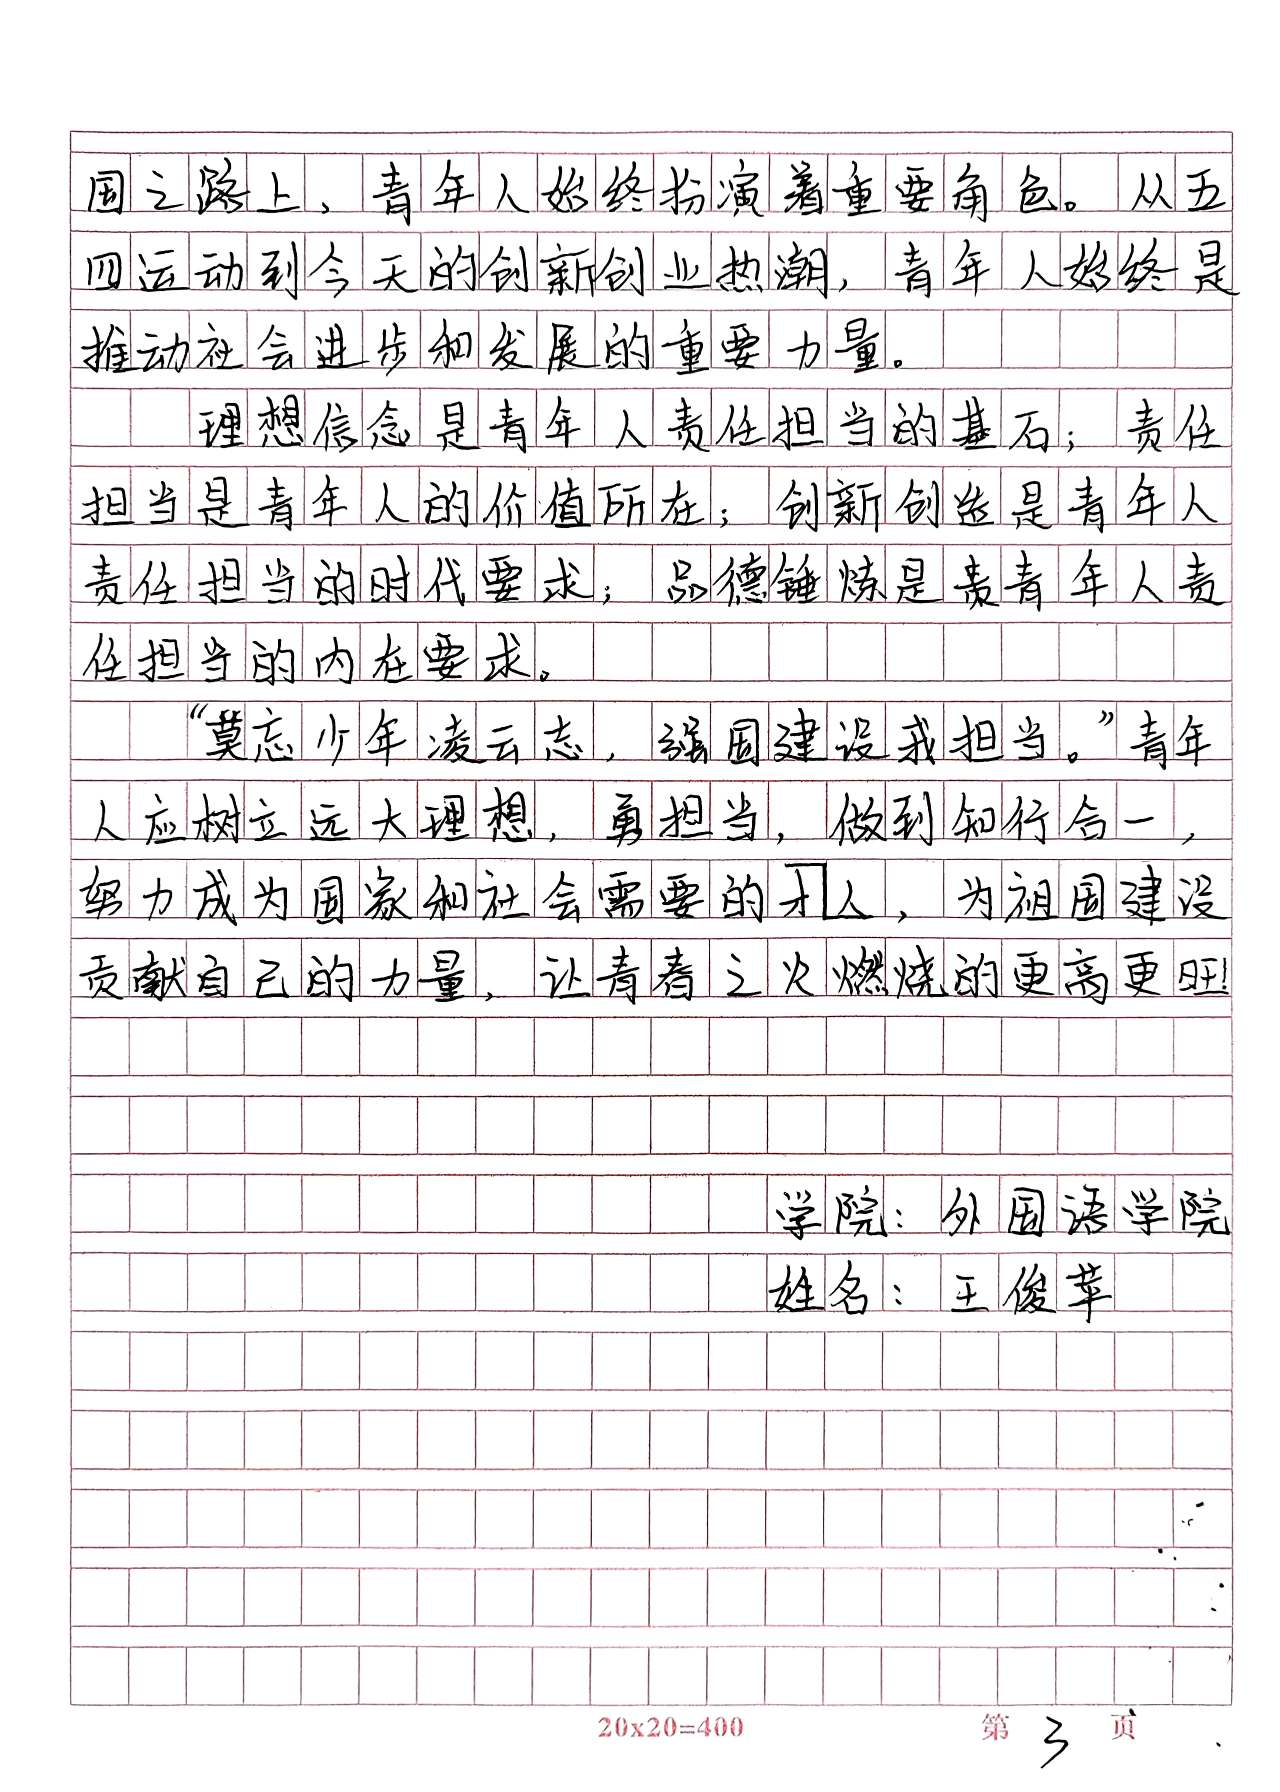 国之路上，青年人始终扮演着重要角色。从五
四运动到今天的创新创业热潮，青年人始终是
推动社会进步和发展的重要力量。
理想信念是青年人责任担当的基石；责任
担当是青年人的价值所在；创新创造是青年人
责任担当的时代要求；品德锤炼是责青年人责
任担当的内在要求。
“莫忘少年凌云志，强国建设我担当。”青年
人应树立远大理想，勇担当，做到知行合一，
努力成为国家和社会需要的才人，为祖国建设
贡献自己的力量，让青春之火燃烧的更高更旺！
学院：外国语学院
姓名：王俊苹
20x20=400
第 3 页